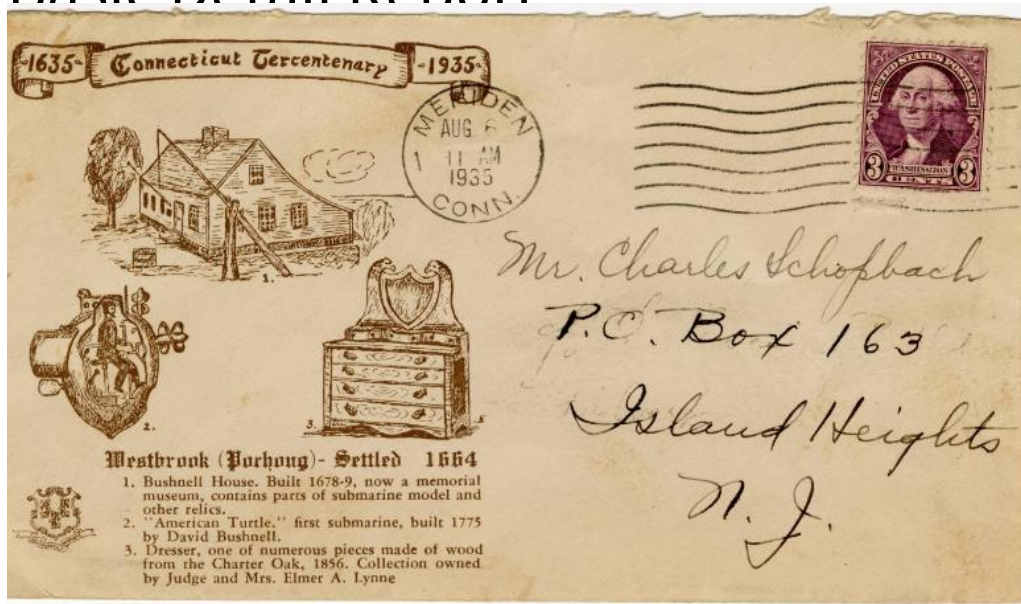 -1635- Connecticut Tercentenary -1935-
MERIDEN
AUG 6
11 AM
1935
CONN.
1
UNITED STATES POSTAGE
3 WASHINGTON 3
CENTS
Mr. Charles Schopbach
P.O. Box 163
Island Heights
N. J.
1.
2.
3.
Westbrook (Pochoug)- Settled 1664
1. Bushnell House. Built 1678-9, now a memorial
museum, contains parts of submarine model and
other relics.
2. "American Turtle," first submarine, built 1775
by David Bushnell.
3. Dresser, one of numerous pieces made of wood
from the Charter Oak, 1856. Collection owned
by Judge and Mrs. Elmer A. Lynne